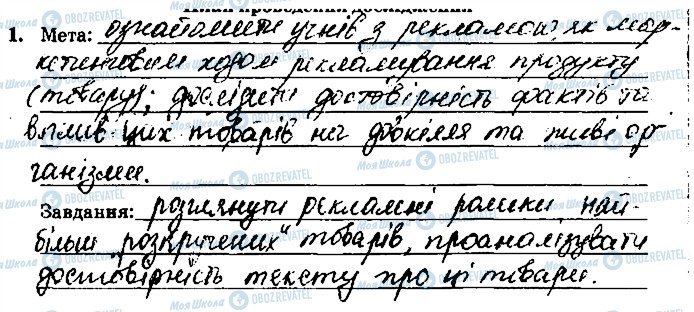 1. Мета: ознайомити учнів з рекламою, як мар-
кетинговим ходом рекламування продукту
(товару); дослідити достовірність фактів та
вплив цих товарів на довкілля та живі ор-
ганізми.
Завдання: розглянути рекламні ролики най-
більш „розкручених" товарів, проаналізувати
достовірність тексту про ці товари.